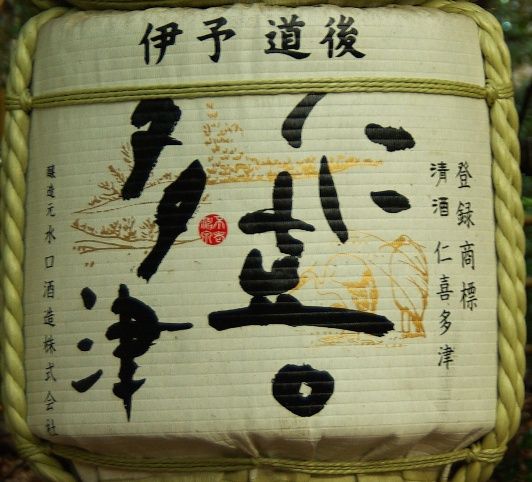 伊予 道後
登録商標
清酒 仁喜多津
仁喜
多津
醸造元 水口酒造株式会社